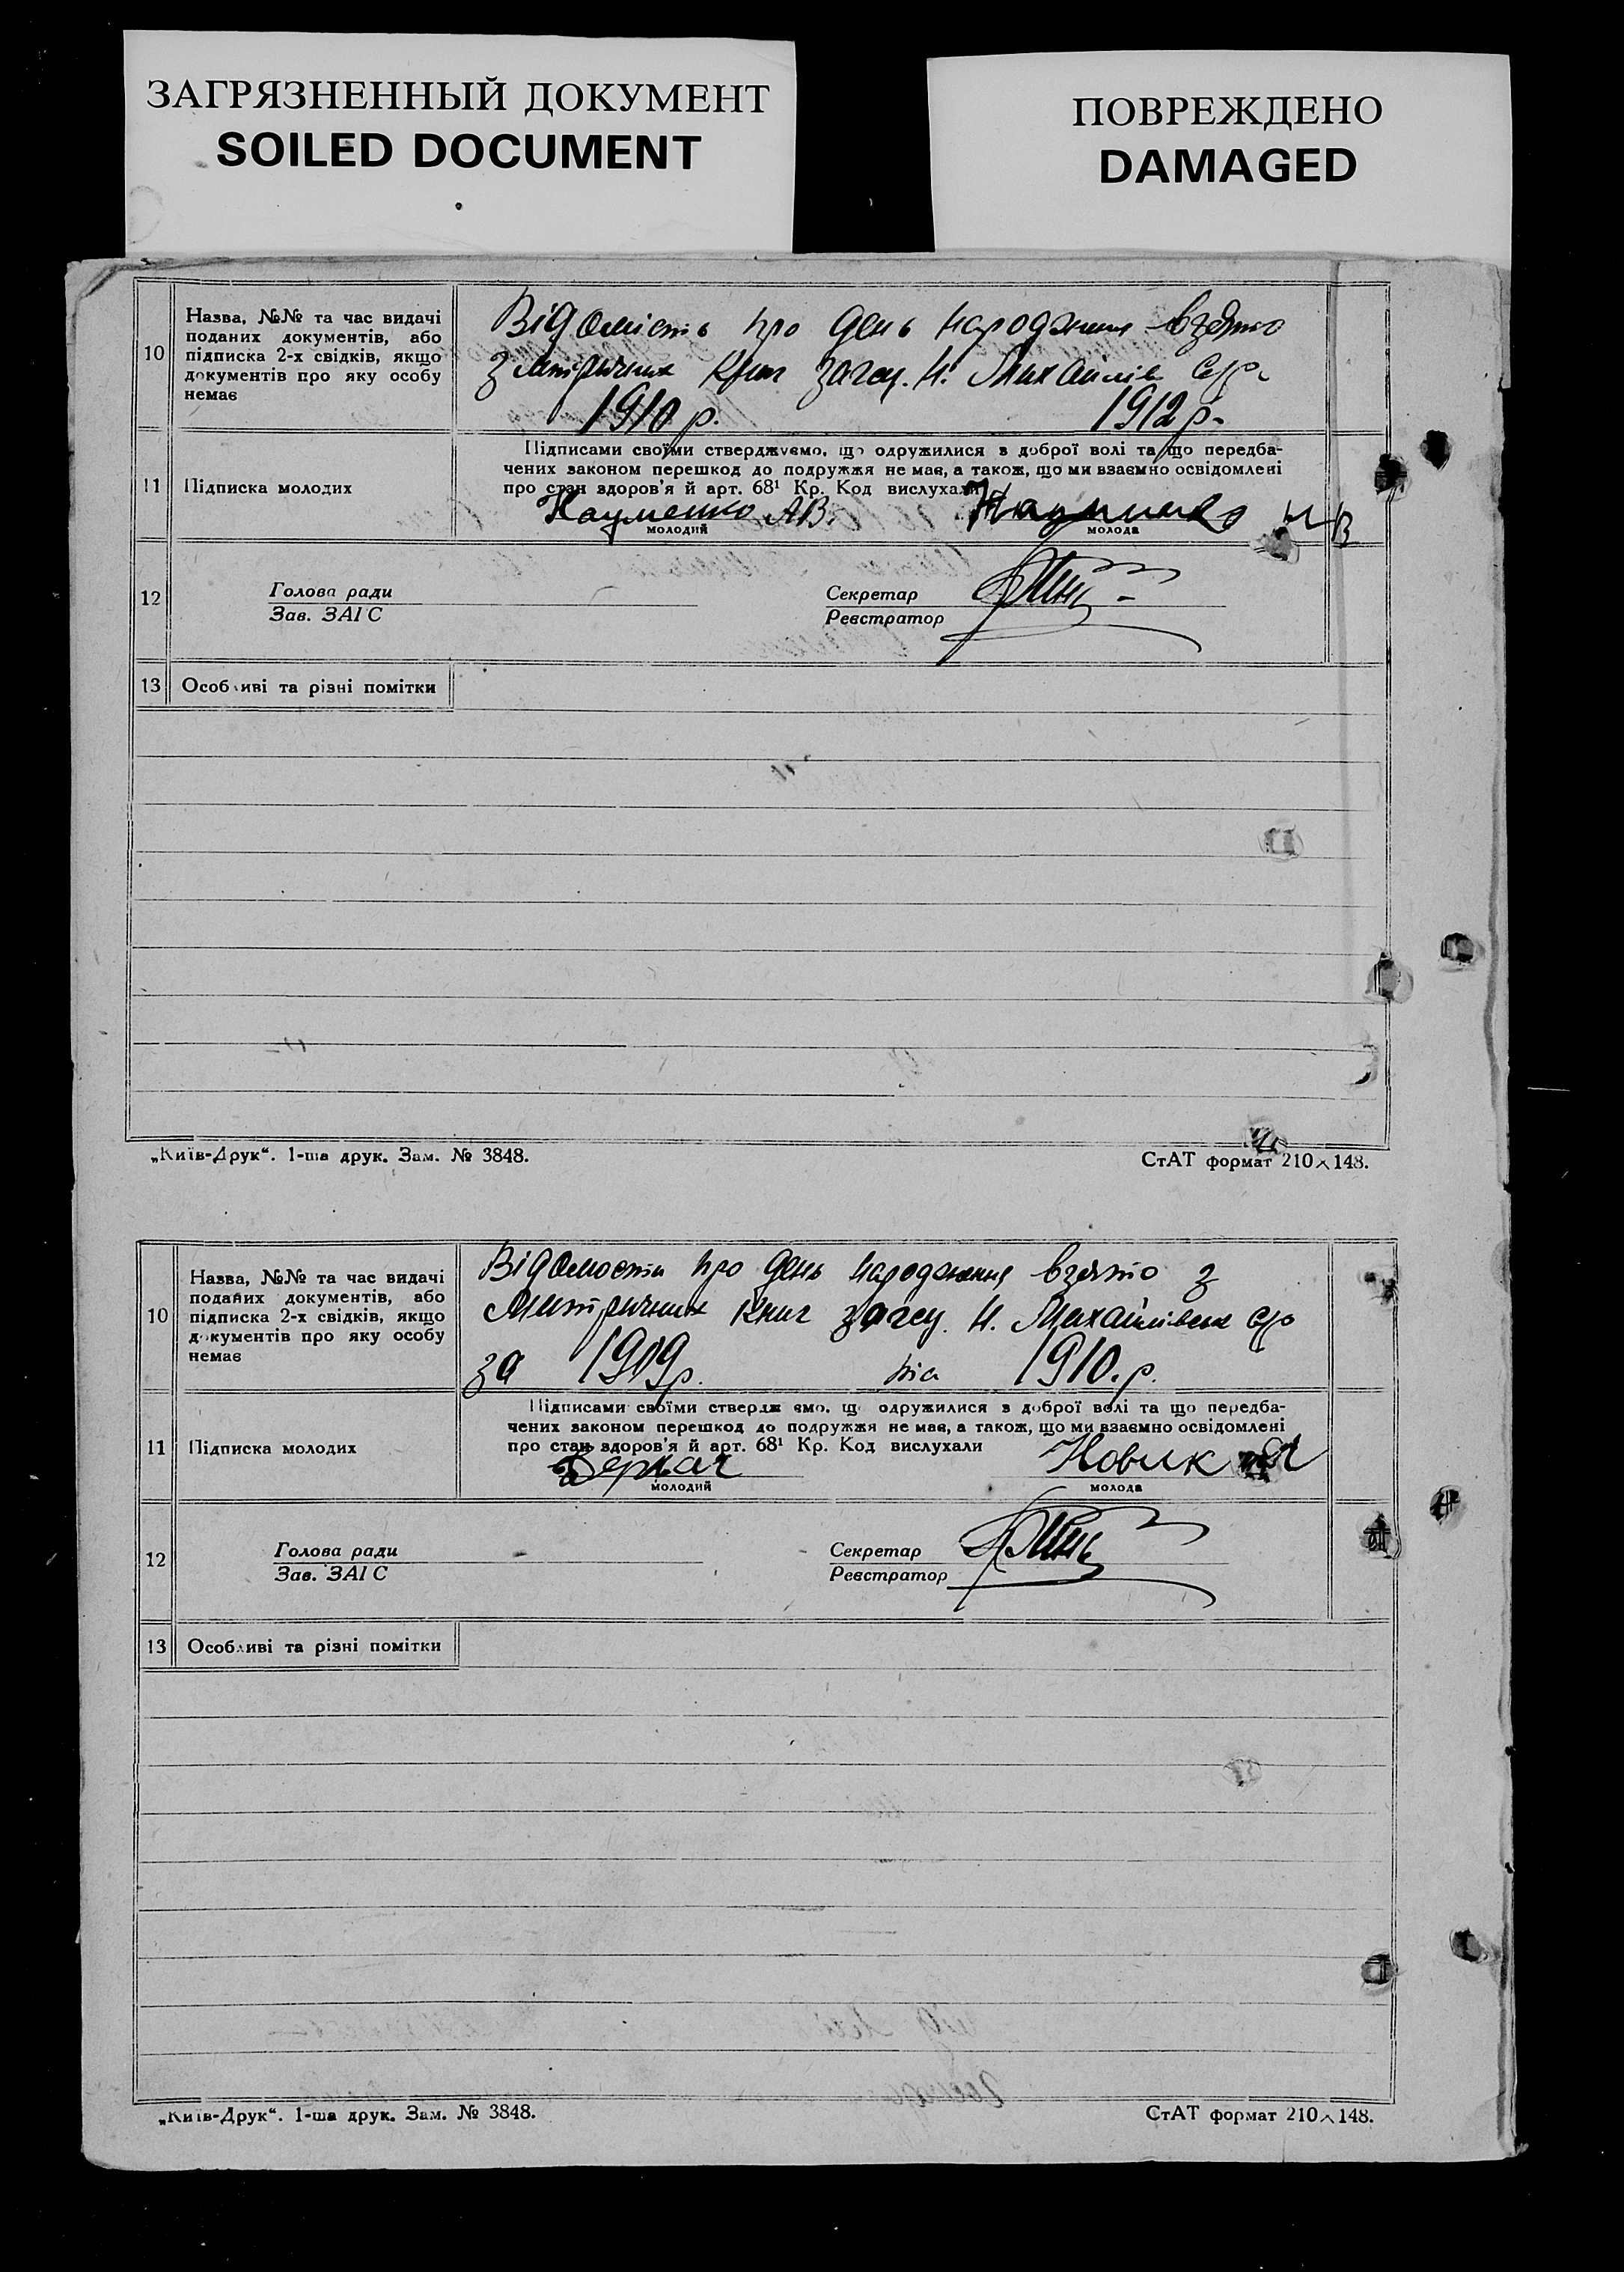 ЗАГРЯЗНЕННЫЙ ДОКУМЕНТ
SOILED DOCUMENT
ПОВРЕЖДЕНО
DAMAGED
10
Назва, №№ та час видачі
поданих документів, або
підписка 2-х свідків, якщо
документів про яку особу
немає
Відомість про день народження взято
з метричних книг загсу. Н. Михайлів с/р
1910 р. 1912 р.
11
Підписка молодих
Підписами своїми стверджуємо, що одружилися з доброї волі та що передба-
чених законом перешкод до подружжя не має, а також, що ми взаємно освідомлені
про стан здоров'я й арт. 68¹ Кр. Код вислухали
Науменко А В. Науменко Н В
молодий молода
12
Голова ради Секретар
Зав. ЗАГС Реєстратор
13 Особливі та різні помітки
„Київ-Друк“. 1-ша друк. Зам. № 3848. СтАТ формат 210×148.
10
Назва, №№ та час видачі
поданих документів, або
підписка 2-х свідків, якщо
документів про яку особу
немає
Відомости про день народження взято з
Метричних книг загсу. Н. Михайлівськ с/р
за 1909 р. 1910. р.
11
Підписка молодих
Підписами своїми стверджуємо, що одружилися з доброї волі та що передба-
чених законом перешкод до подружжя не має, а також, що ми взаємно освідомлені
про стан здоров'я й арт. 68¹ Кр. Код вислухали
Деркач Новик
молодий молода
12
Голова ради Секретар
Зав. ЗАГС Реєстратор
13 Особливі та різні помітки
„Київ-Друк“. 1-ша друк. Зам. № 3848. СтАТ формат 210×148.